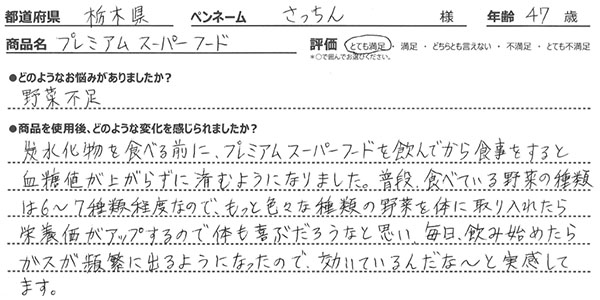 都道府県 栃木県 ペンネーム さっちん 様 年齢 47 歳
商品名 プレミアム スーパーフード 評価 とても満足 ・ 満足 ・ どちらとも言えない ・ 不満足 ・ とても不満足
*○で囲んでお選びください。
●どのようなお悩みがありましたか?
野菜不足
●商品を使用後、どのような変化を感じられましたか?
炭水化物を食べる前に、プレミアムスーパーフードを飲んでから食事をすると
血糖値が上がらずに済むようになりました。普段、食べている野菜の種類
は6〜7種類程度なので、もっと色々な種類の野菜を体に取り入れたら
栄養価がアップするので体も喜ぶだろうなと思い、毎日、飲み始めたら
ガスが頻繁に出るようになったので、効いているんだな〜と実感して
ます。